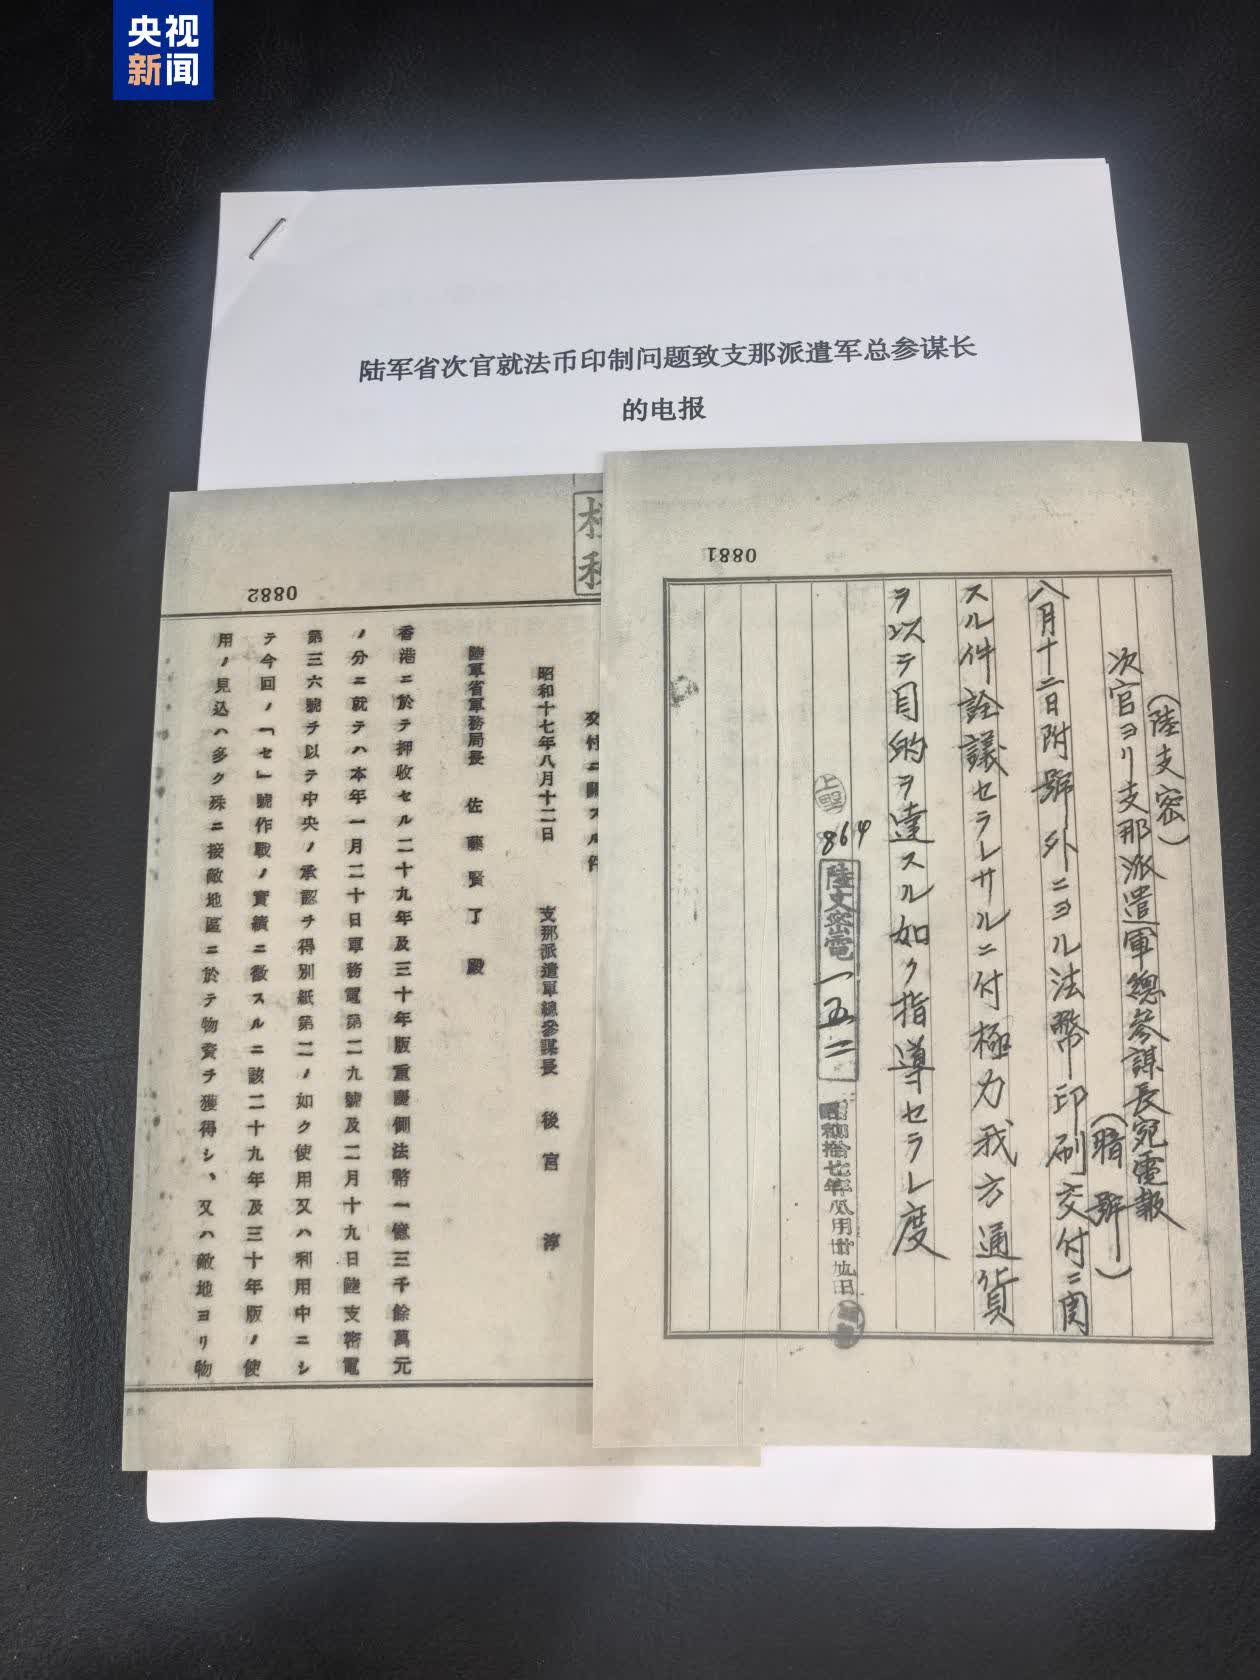 央视
新闻
陆军省次官就法币印制问题致支那派遣军总参谋长
的电报
0881
(陸支密)
次官ヨリ支那派遣軍總參謀長宛電報
(暗號)
八月十二日附號外ニヨル法幣印刷交付ニ関
スル件詮議セラレサルニ付極力我方通貨
ヲ以テ目的ヲ達スル如ク指導セラレ度
上聖
864
陸支密電一五二
昭和拾七年八月廿九日
0882
交付ニ關スル件
昭和十七年八月十二日 支那派遣軍總參謀長 後宮 淳
陸軍省軍務局長 佐藤賢了殿
香港ニ於テ押收セル二十九年及三十年版重慶側法幣一億三千餘萬元
ノ分ニ就テハ本年一月二十日軍務電第二九號及二月十九日陸支密電
第三六號ヲ以テ中央ノ承認ヲ得別紙第二ノ如ク使用又ハ利用中ニシ
テ今回ノ「セ」號作戰ノ實績ニ徵スルニ該二十九年及三十年版ノ使
用ノ見込ハ多ク殊ニ接敵地區ニ於テ物資ヲ獲得シ、又ハ敵地ヨリ物